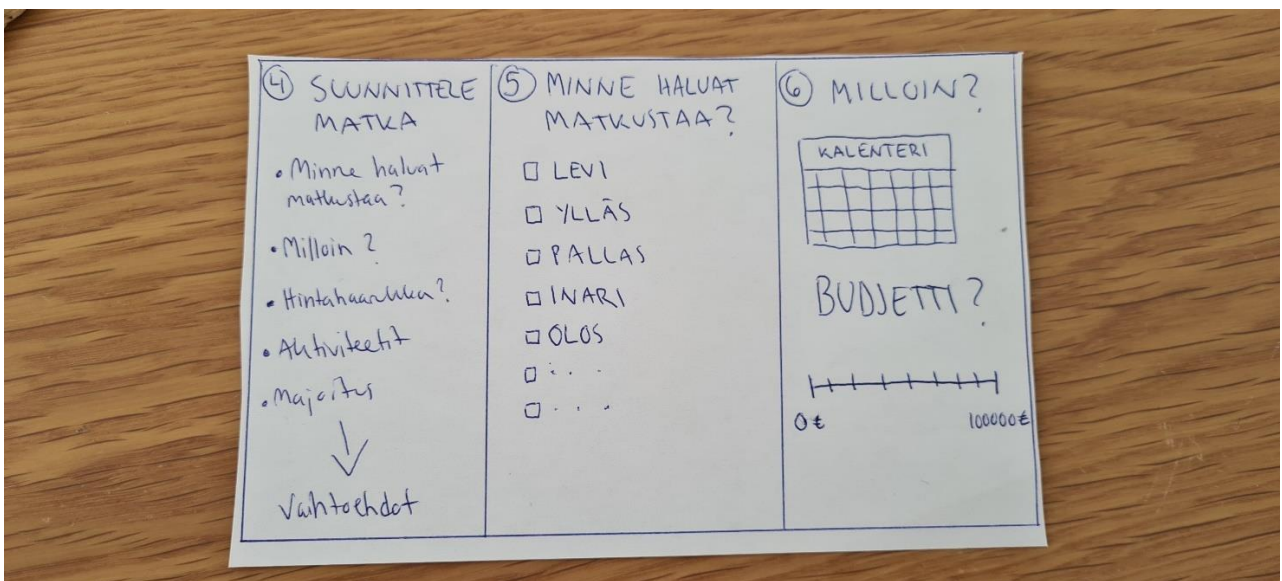 ④ SUUNNITTELE
MATKA
• Minne haluat
matkustaa?
• Milloin?
• Hintahaarukka?
• Aktiviteetit
• Majoitus
Vaihtoehdot
⑤ MINNE HALUAT
MATKUSTAA?
□ LEVI
□ YLLÄS
□ PALLAS
□ INARI
□ OLOS
□ . . .
□ . . .
⑥ MILLOIN?
KALENTERI
BUDJETTI?
0€ 100000€